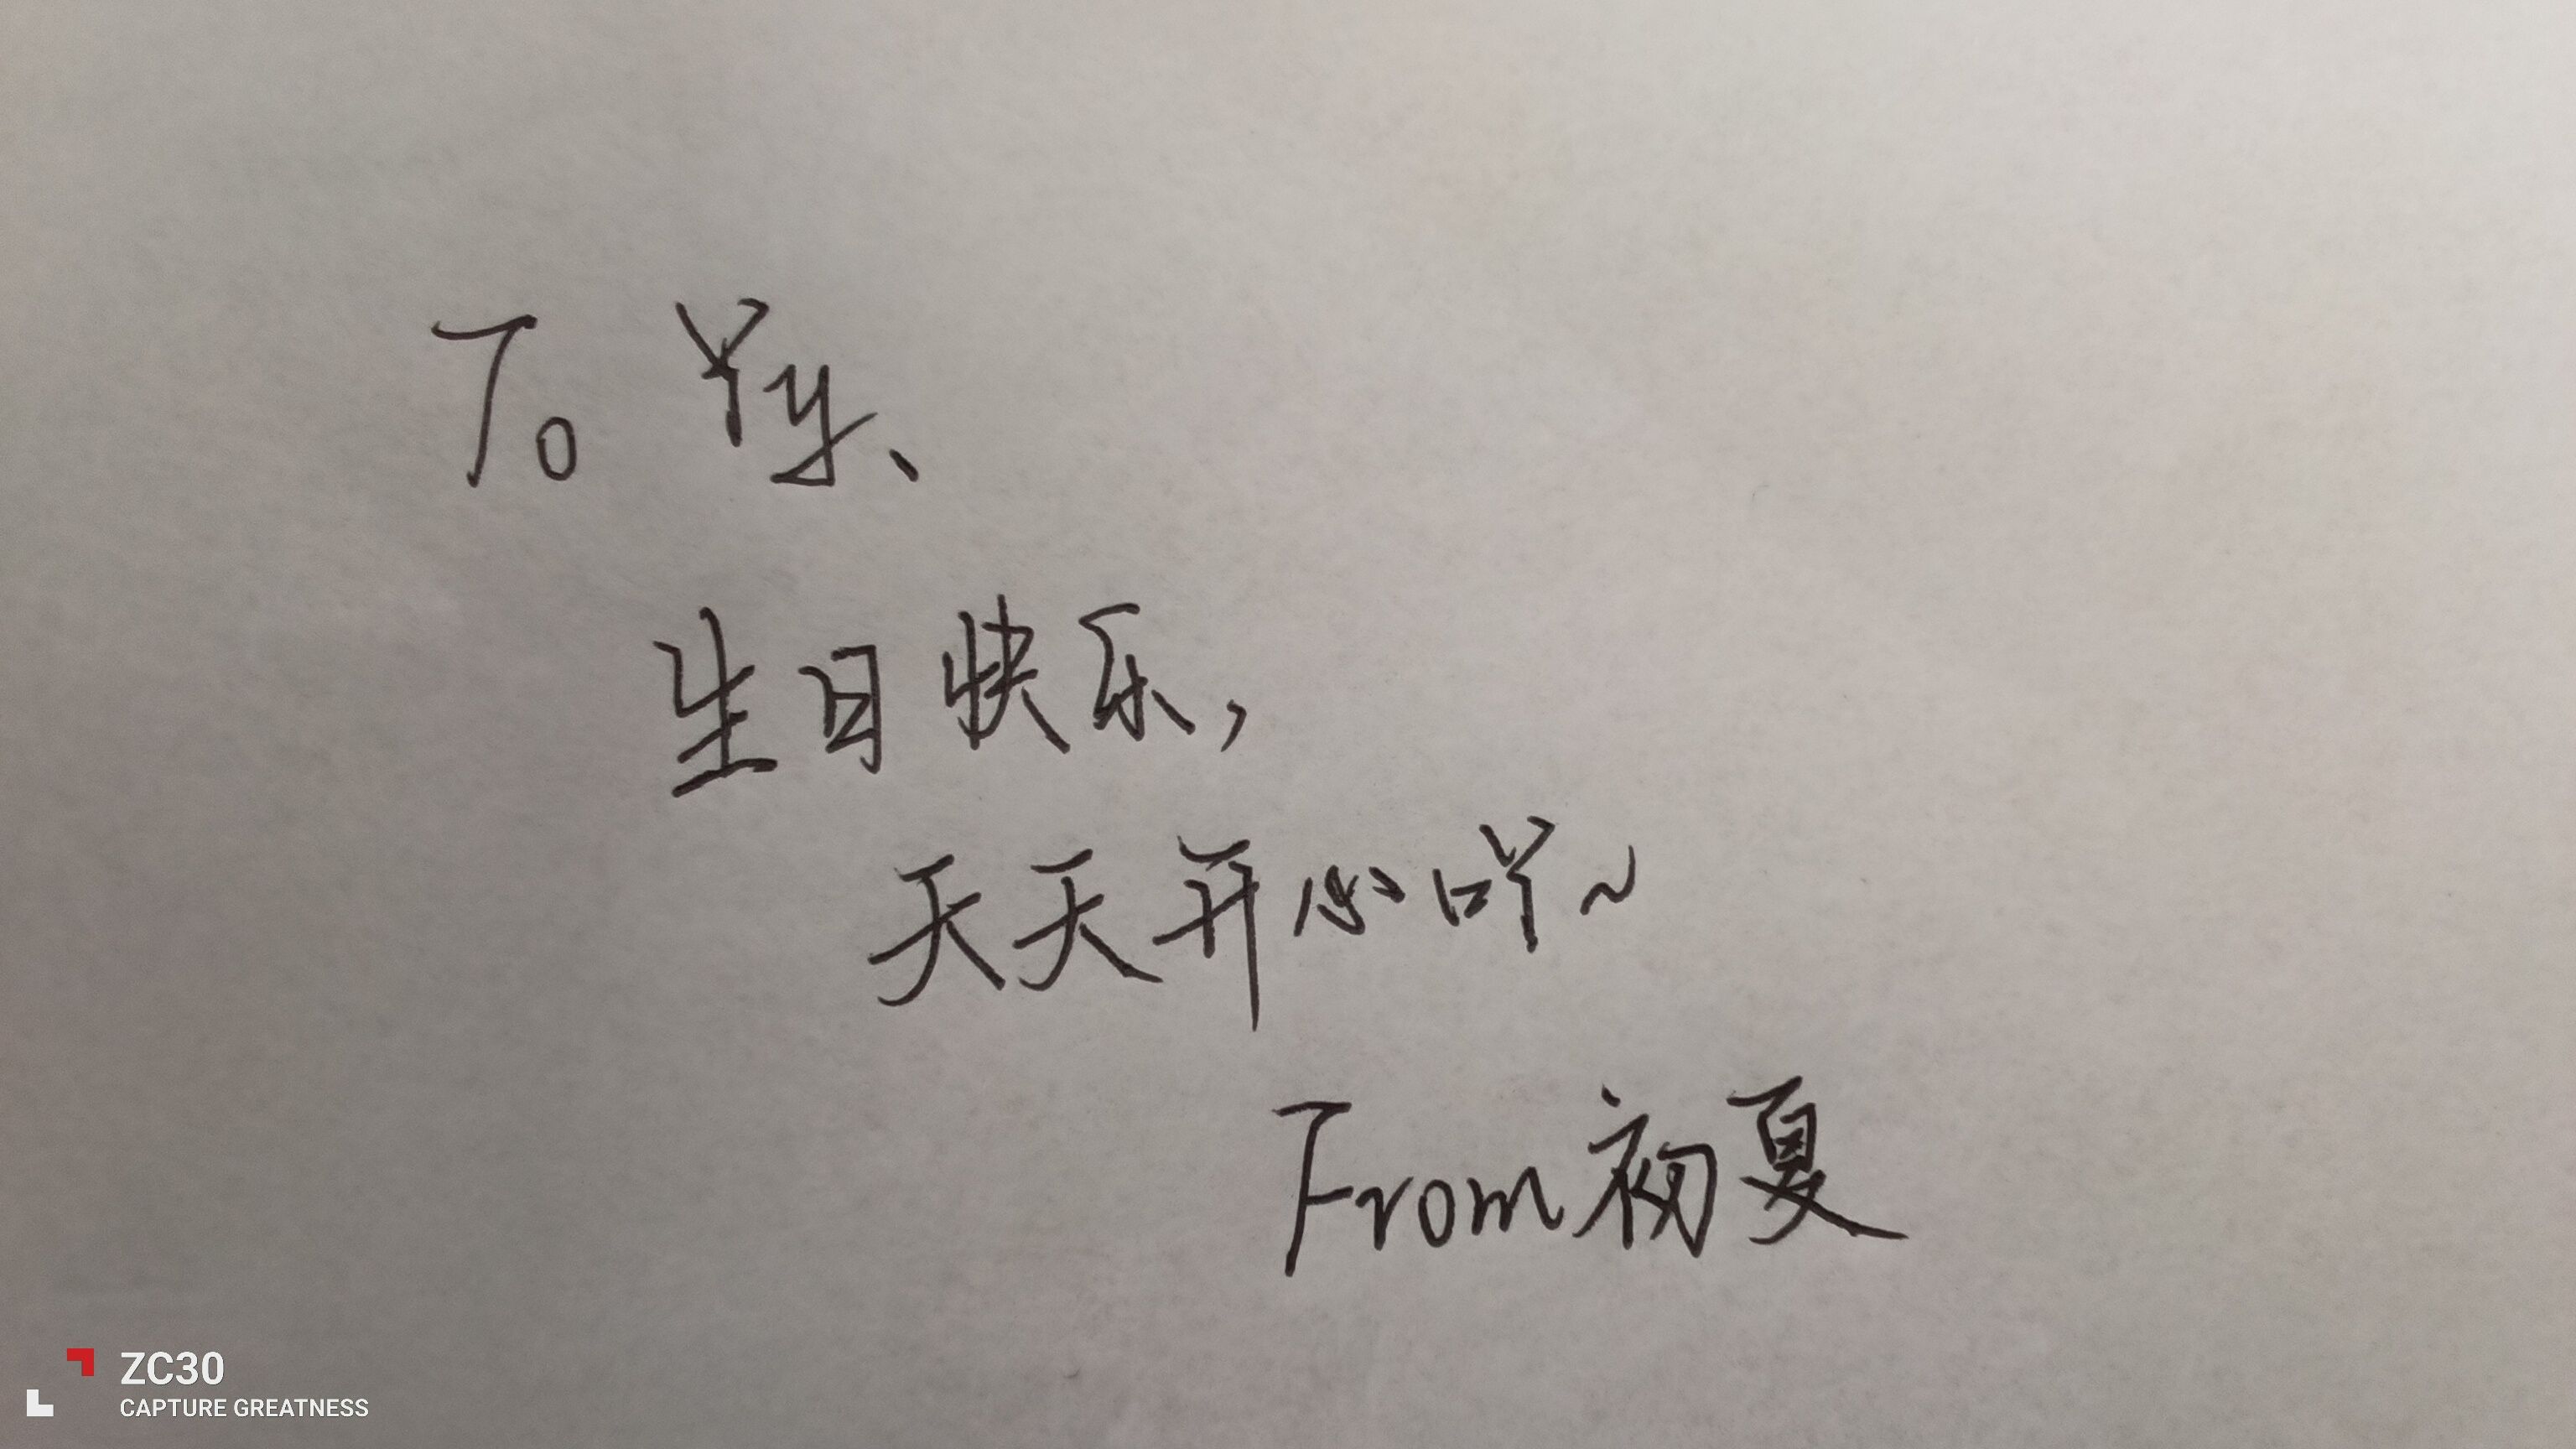 To 丫头
生日快乐，
天天开心吖~
From 初夏
ZC30
CAPTURE GREATNESS